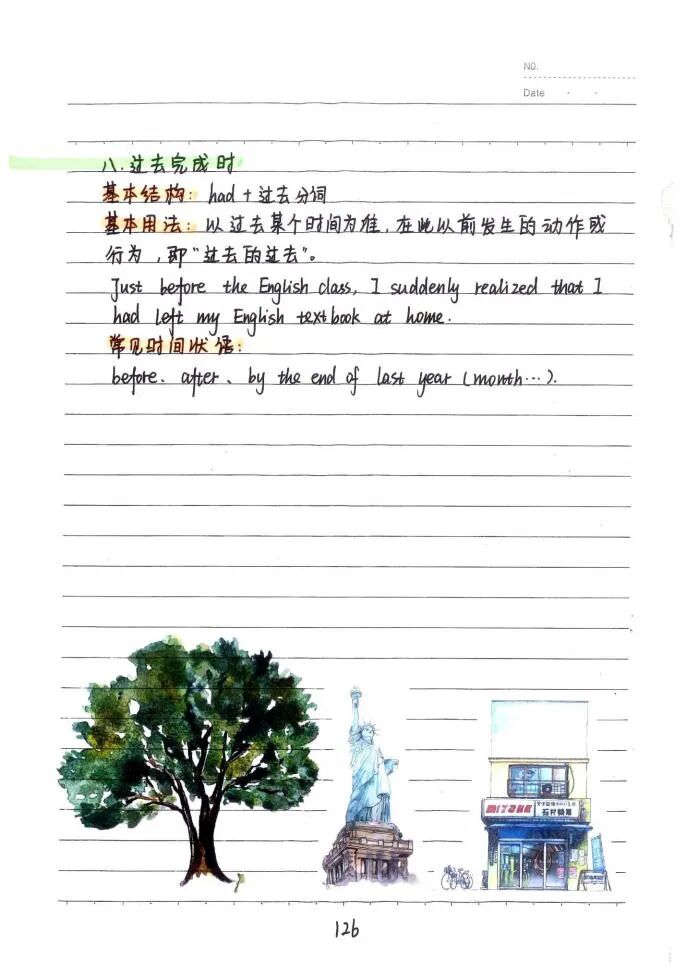 NO.
Date
八.过去完成时
基本结构: had + 过去分词
基本用法: 以过去某个时间为准,在此以前发生的动作或
行为,即“过去的过去”。
Just before the English class, I suddenly realized that I
had left my English textbook at home.
常见时间状语:
before、after、by the end of last year (month…).
126